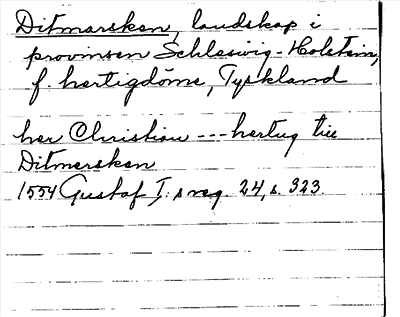 Ditmarsken, landskap i
provinsen Schleswig-Holstein,
f. hertigdöme, Tyskland
her Christian --- hertug till
Ditmersken
1554 Gustaf I:s reg. 24, s. 323.